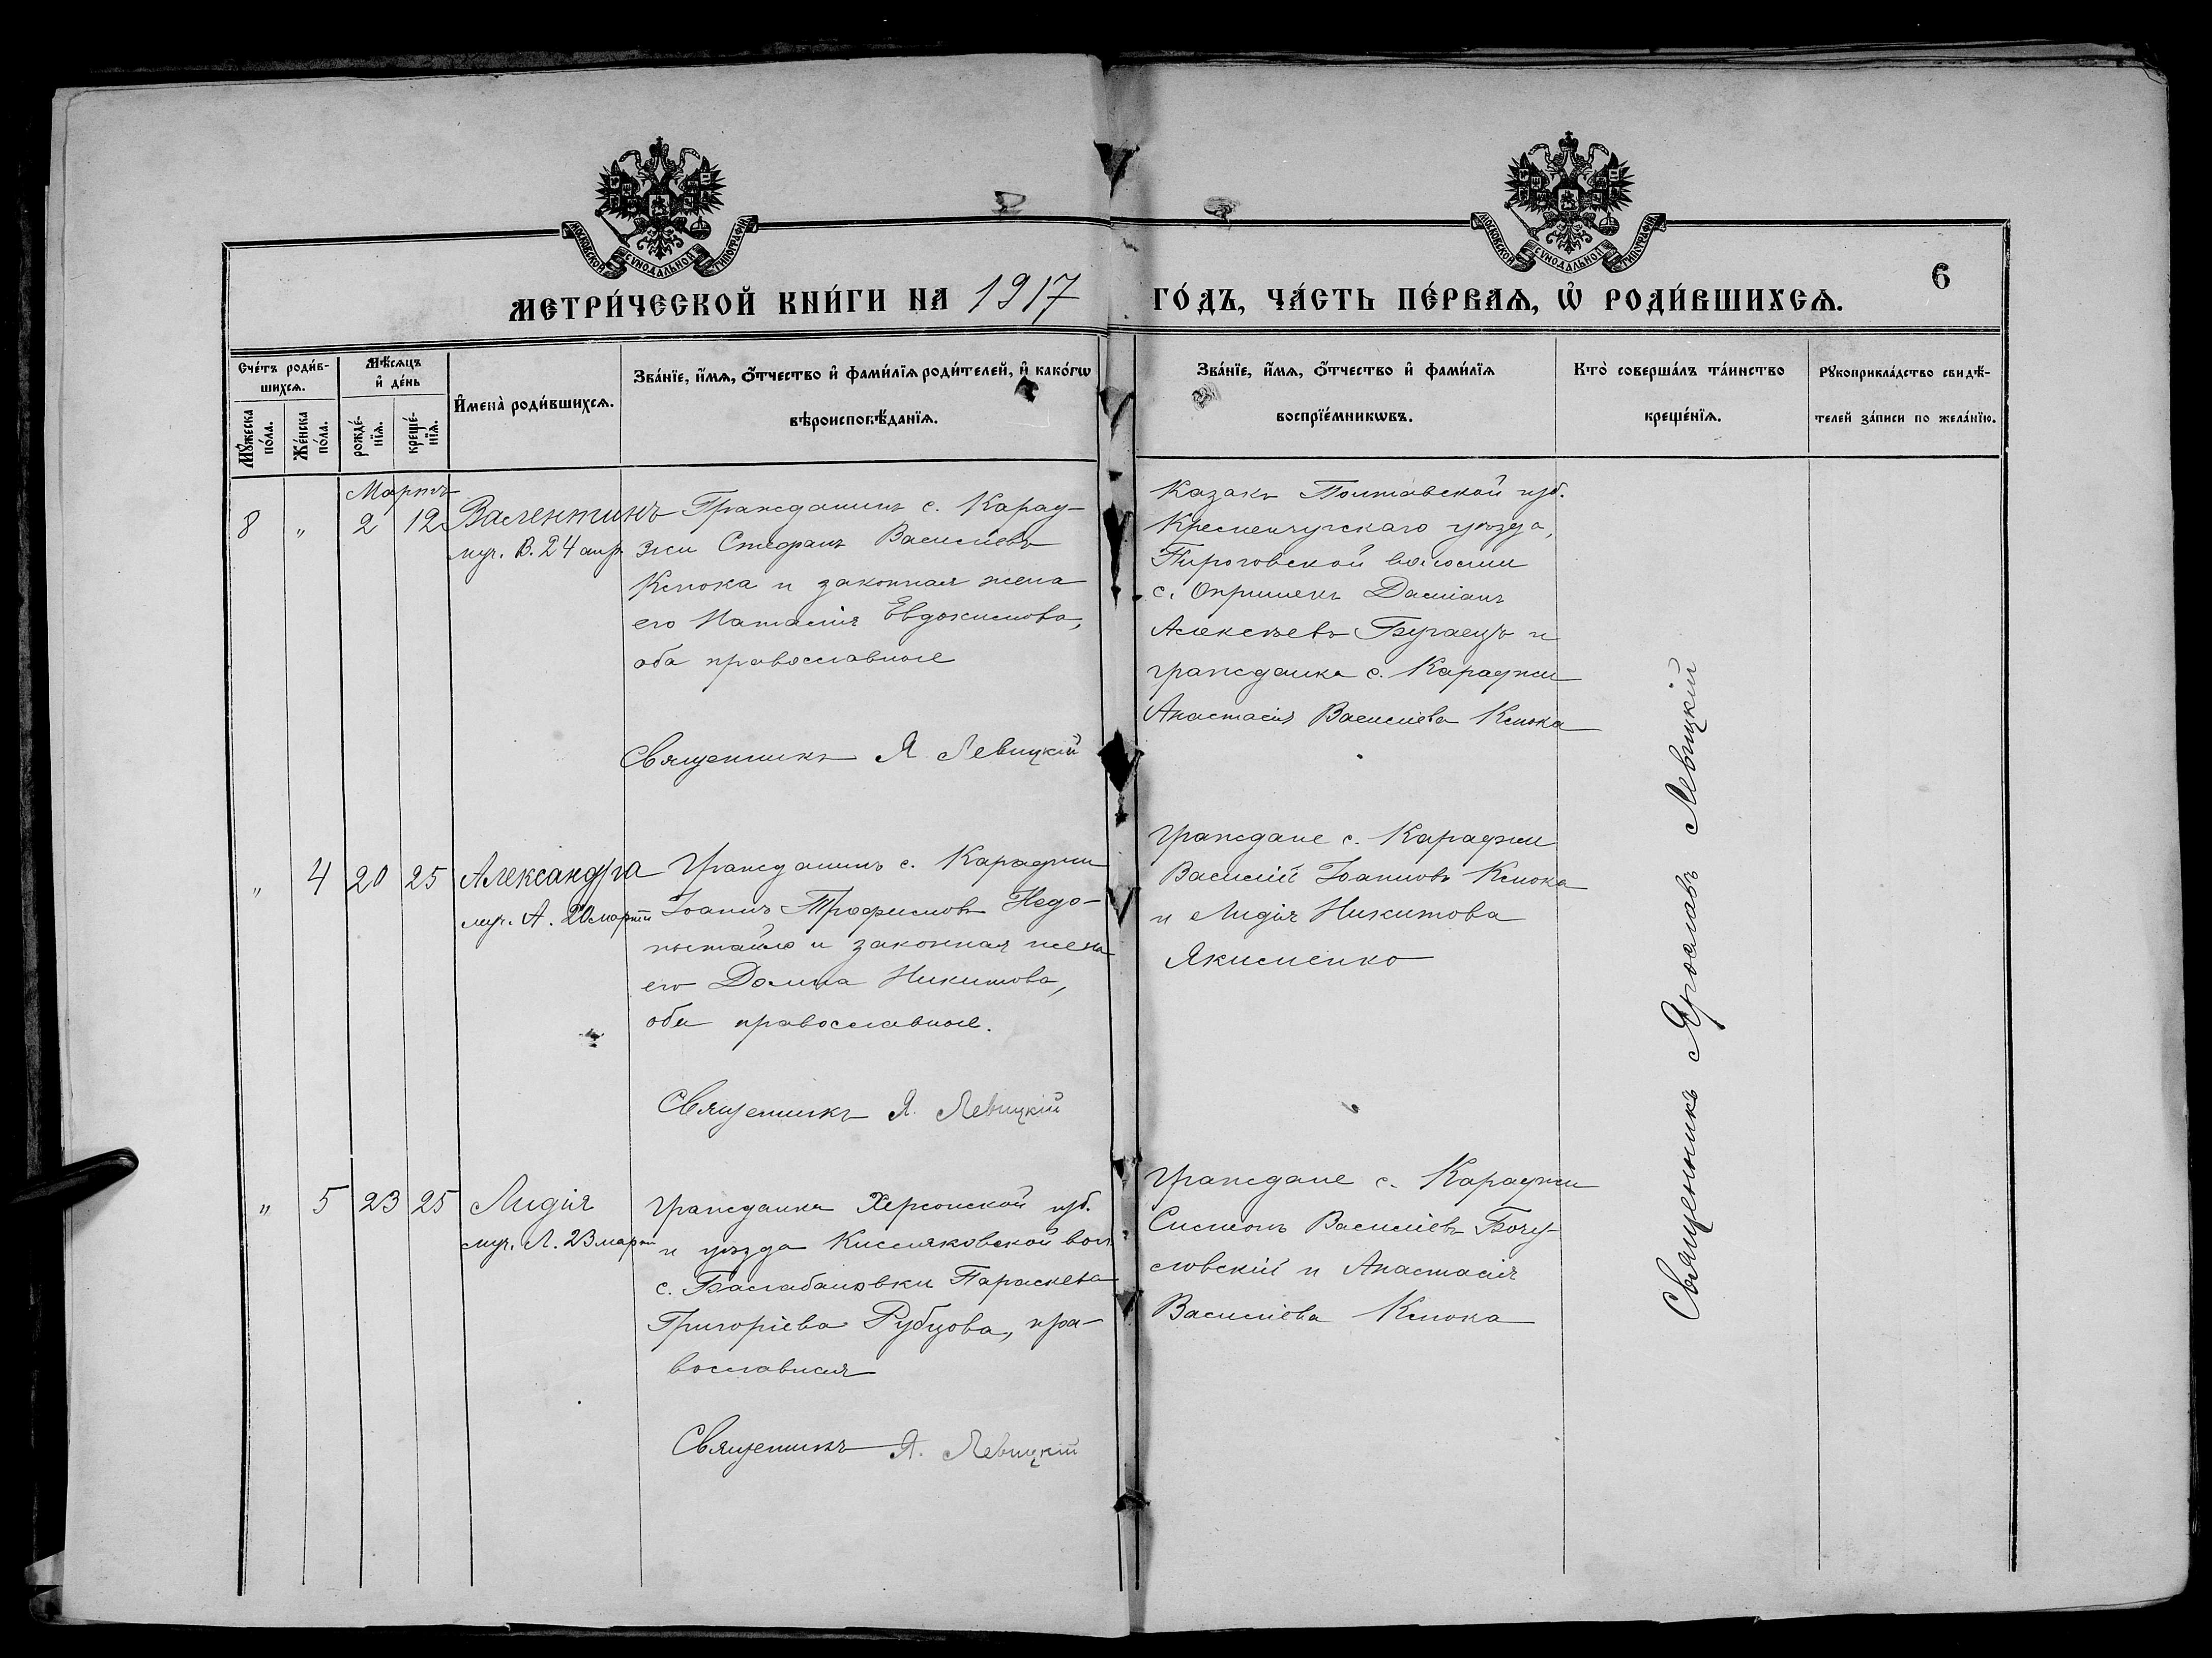 МОСКОВСКОЙ СУНОДАЛЬНОЙ ТИПОГРАФІИ
МОСКОВСКОЙ СУНОДАЛЬНОЙ ТИПОГРАФІИ
6
МЕТРИ́ЧЕСКОЙ КНИ́ГИ НА 1917 ГО́ДЪ, ЧА́СТЬ ПЕ́РВАѦ, Ѡ҆ РОДИ́ВШИХСѦ.
Сче́тъ роди́в-
шихсѧ.
Мꙋ́жеска по́ла.
Же́нска по́ла.
Мѣ́сѧцъ
и҆ де́нь
рожде́-
нїѧ.
креще́-
нїѧ.
И҆мена̀ роди́вшихсѧ.
Зва́нїе, и҆́мѧ, ѻ҆́тчество и҆ фами́лїѧ роди́телей, и҆ како́гѡ
вѣроисповѣ́данїѧ.
Зва́нїе, и҆́мѧ, ѻ҆́тчество и҆ фами́лїѧ
воспрїе́мникѡвъ.
Кто̀ соверша́лъ та́инство
креще́нїѧ.
Рꙋкоприкла́дство свидѣ́-
телей за́писи по жела́нїю.
Мартъ
8 " 2 12 Валентинъ
муч. В. 24 апр.
Гражданинъ с. Карад-
жи Стефанъ Васильевъ
Клюка и законная жена
его Наталія Евдокимова,
оба православные
Священникъ Я. Левицкій
Казакъ Полтавской губ.
Кременчугскаго уѣзда,
Пироговской волости
с. Опришекъ Даміанъ
Алексѣевъ Бугаецъ и
гражданка с. Караджи
Анастасія Васильева Клюка
" 4 20 25 Александра
муч. А. 20 марта
Гражданинъ с. Караджи
Іоаннъ Трофимовъ Недо-
пытайло и законная жена
его Домна Никитова,
оба православные.
Священникъ Я. Левицкій
Граждане с. Караджи
Василій Іоанновъ Клюка
и Лидія Никитова
Якименко
" 5 23 25 Лидія
муч. Л. 23 марта
Гражданка Херсонской губ.
и уѣзда Кисляковской вол.
с. Балабановки Параскева
Григоріева Рубцова, пра-
вославная
Священникъ Я. Левицкій
Граждане с. Караджи
Симеонъ Васильевъ Богу-
словскій и Анастасія
Васильева Клюка
Священникъ Ярославъ Левицкій